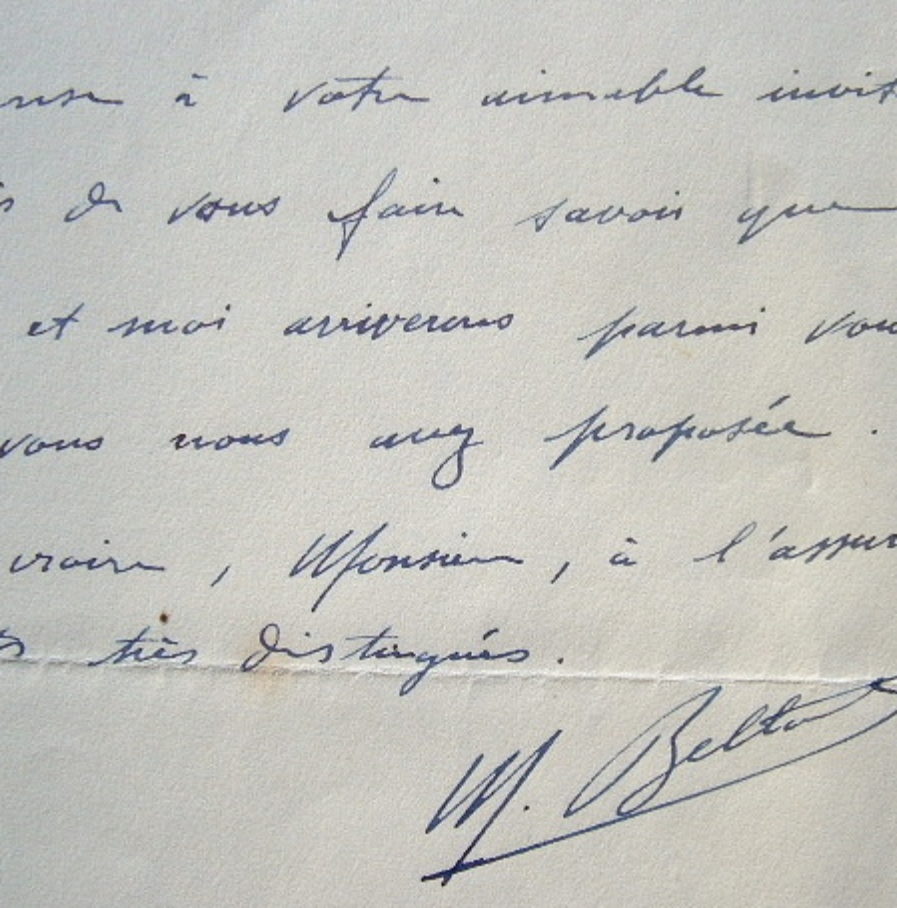 à votre aimable invit
de vous faire savoir que
et moi arriverons parmi vou
vous nous avez proposée .
croire , Monsieur , à l'assur
très distingués .
M. Belto